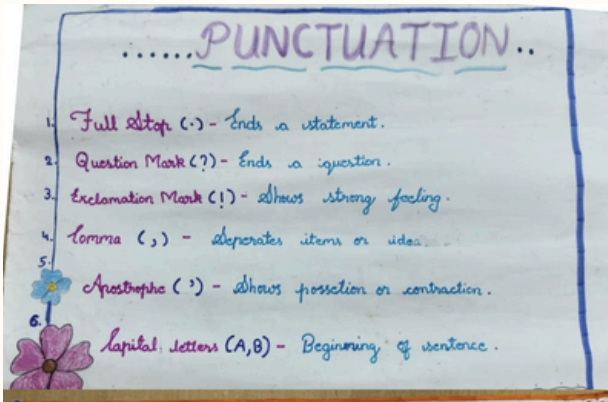 ......PUNCTUATION..
1. Full Stop (.) - Ends a statement.
2. Question Mark (?) - Ends a question.
3. Exclamation Mark (!) - Shows strong feeling.
4. Comma (,) - Seperates items or idea
5. Apostrophe (') - Shows possetion or contraction.
6. Capital letters (A,B) - Beginning of sentence.